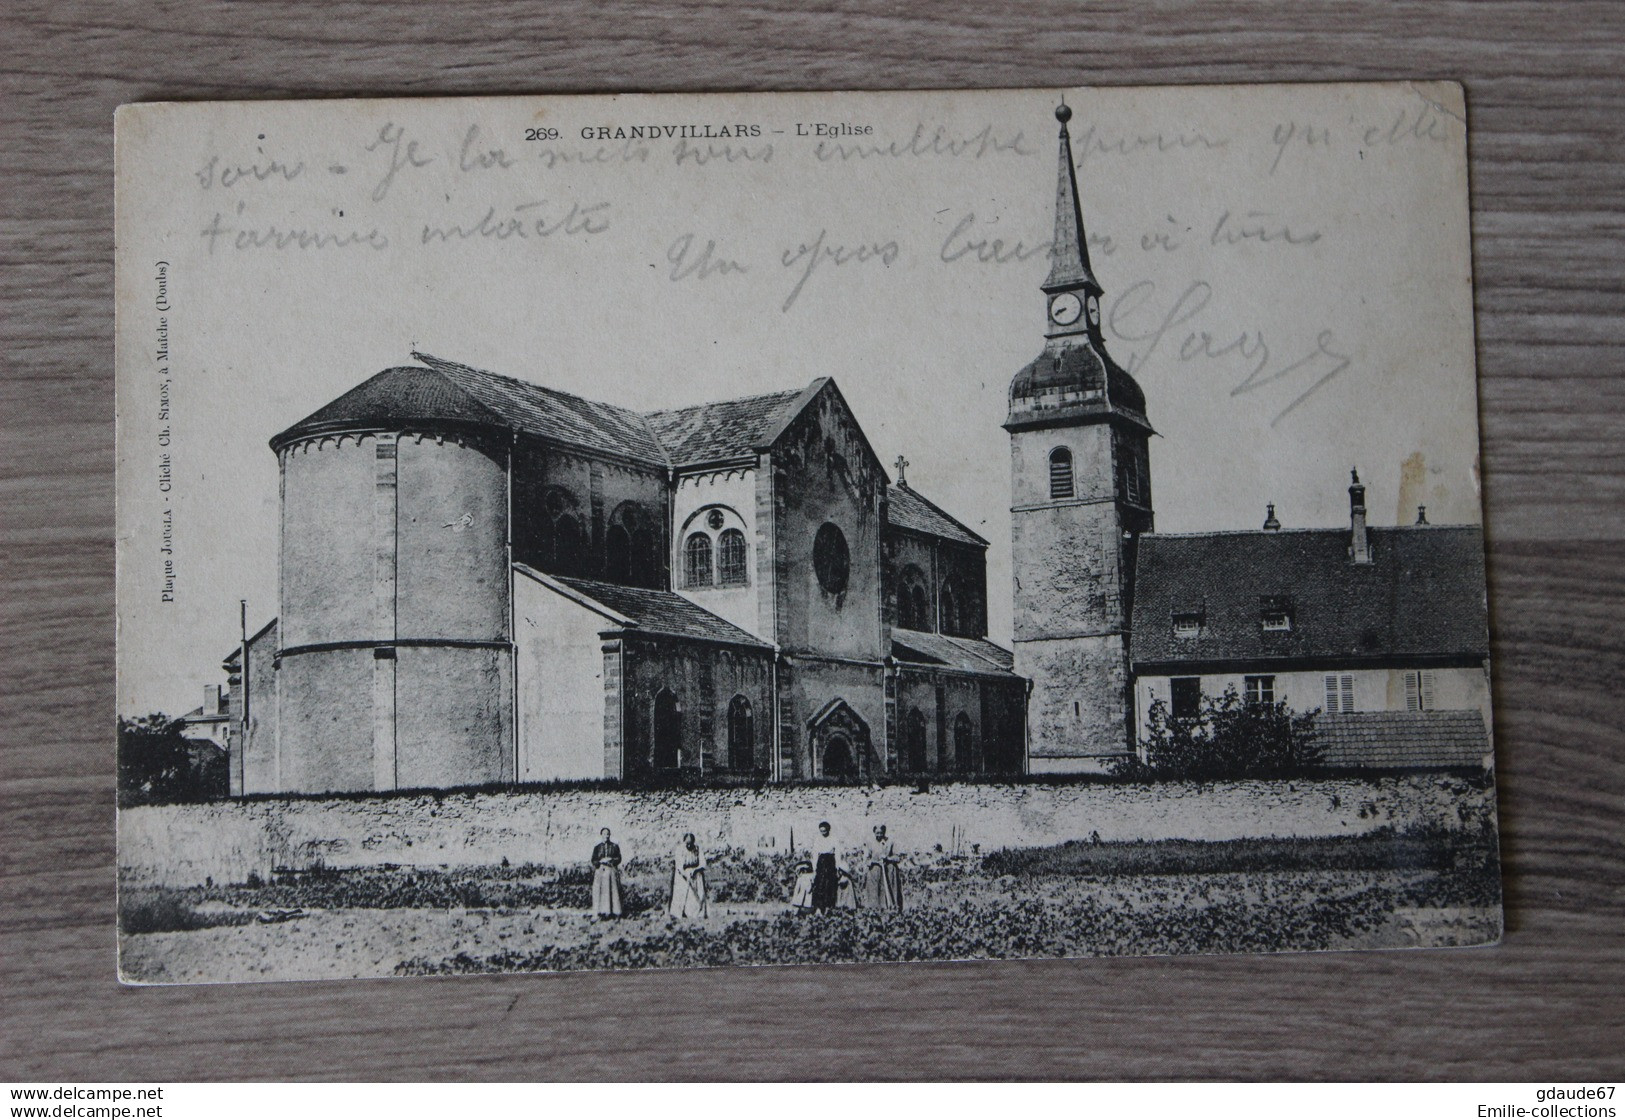 269. GRANDVILLARS – L'Eglise
soir - Je la mets sous enveloppe pour qu'elle
t'arrive intacte
Un gros baiser à tous
Plaque JOUGLA - Cliché Ch. SIMON, à Maîche (Doubs)
www.delcampe.net
gdaude67
www.delcampe.net
Emilie-collections